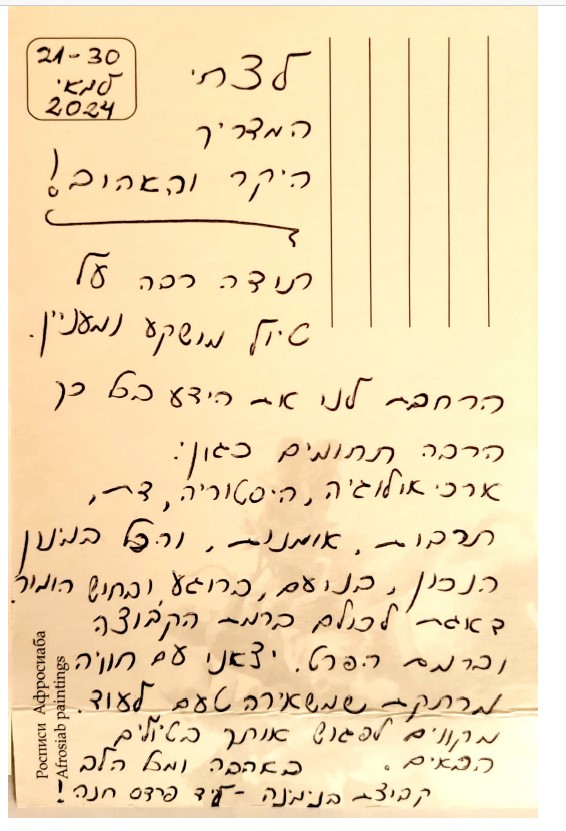 21-30
למאי
2024
לצחי
המדריך
היקר והאהוב!
תודה רבה על
טיול מושקע ומעניין.
הרחבת לנו את הידע בכל כך
הרבה תחומים כגון:
ארכיאולוגיה, היסטוריה, דת,
תרבות, אומנות, והכל במינון
הנכון, בנועם, ברוגע ובחוש הומור.
דאגת לכולם ברמת הקבוצה
וברמת הפרט. יצאנו עם חוויה
מרתקת שמשאירה טעם לעוד.
מקווים לפגוש אותך בטיולים
הבאים. באהבה ומכל הלב
קבוצת בנימינה - ליד פרדס חנה!
Росписи Афросиаба
Afrosiab paintings